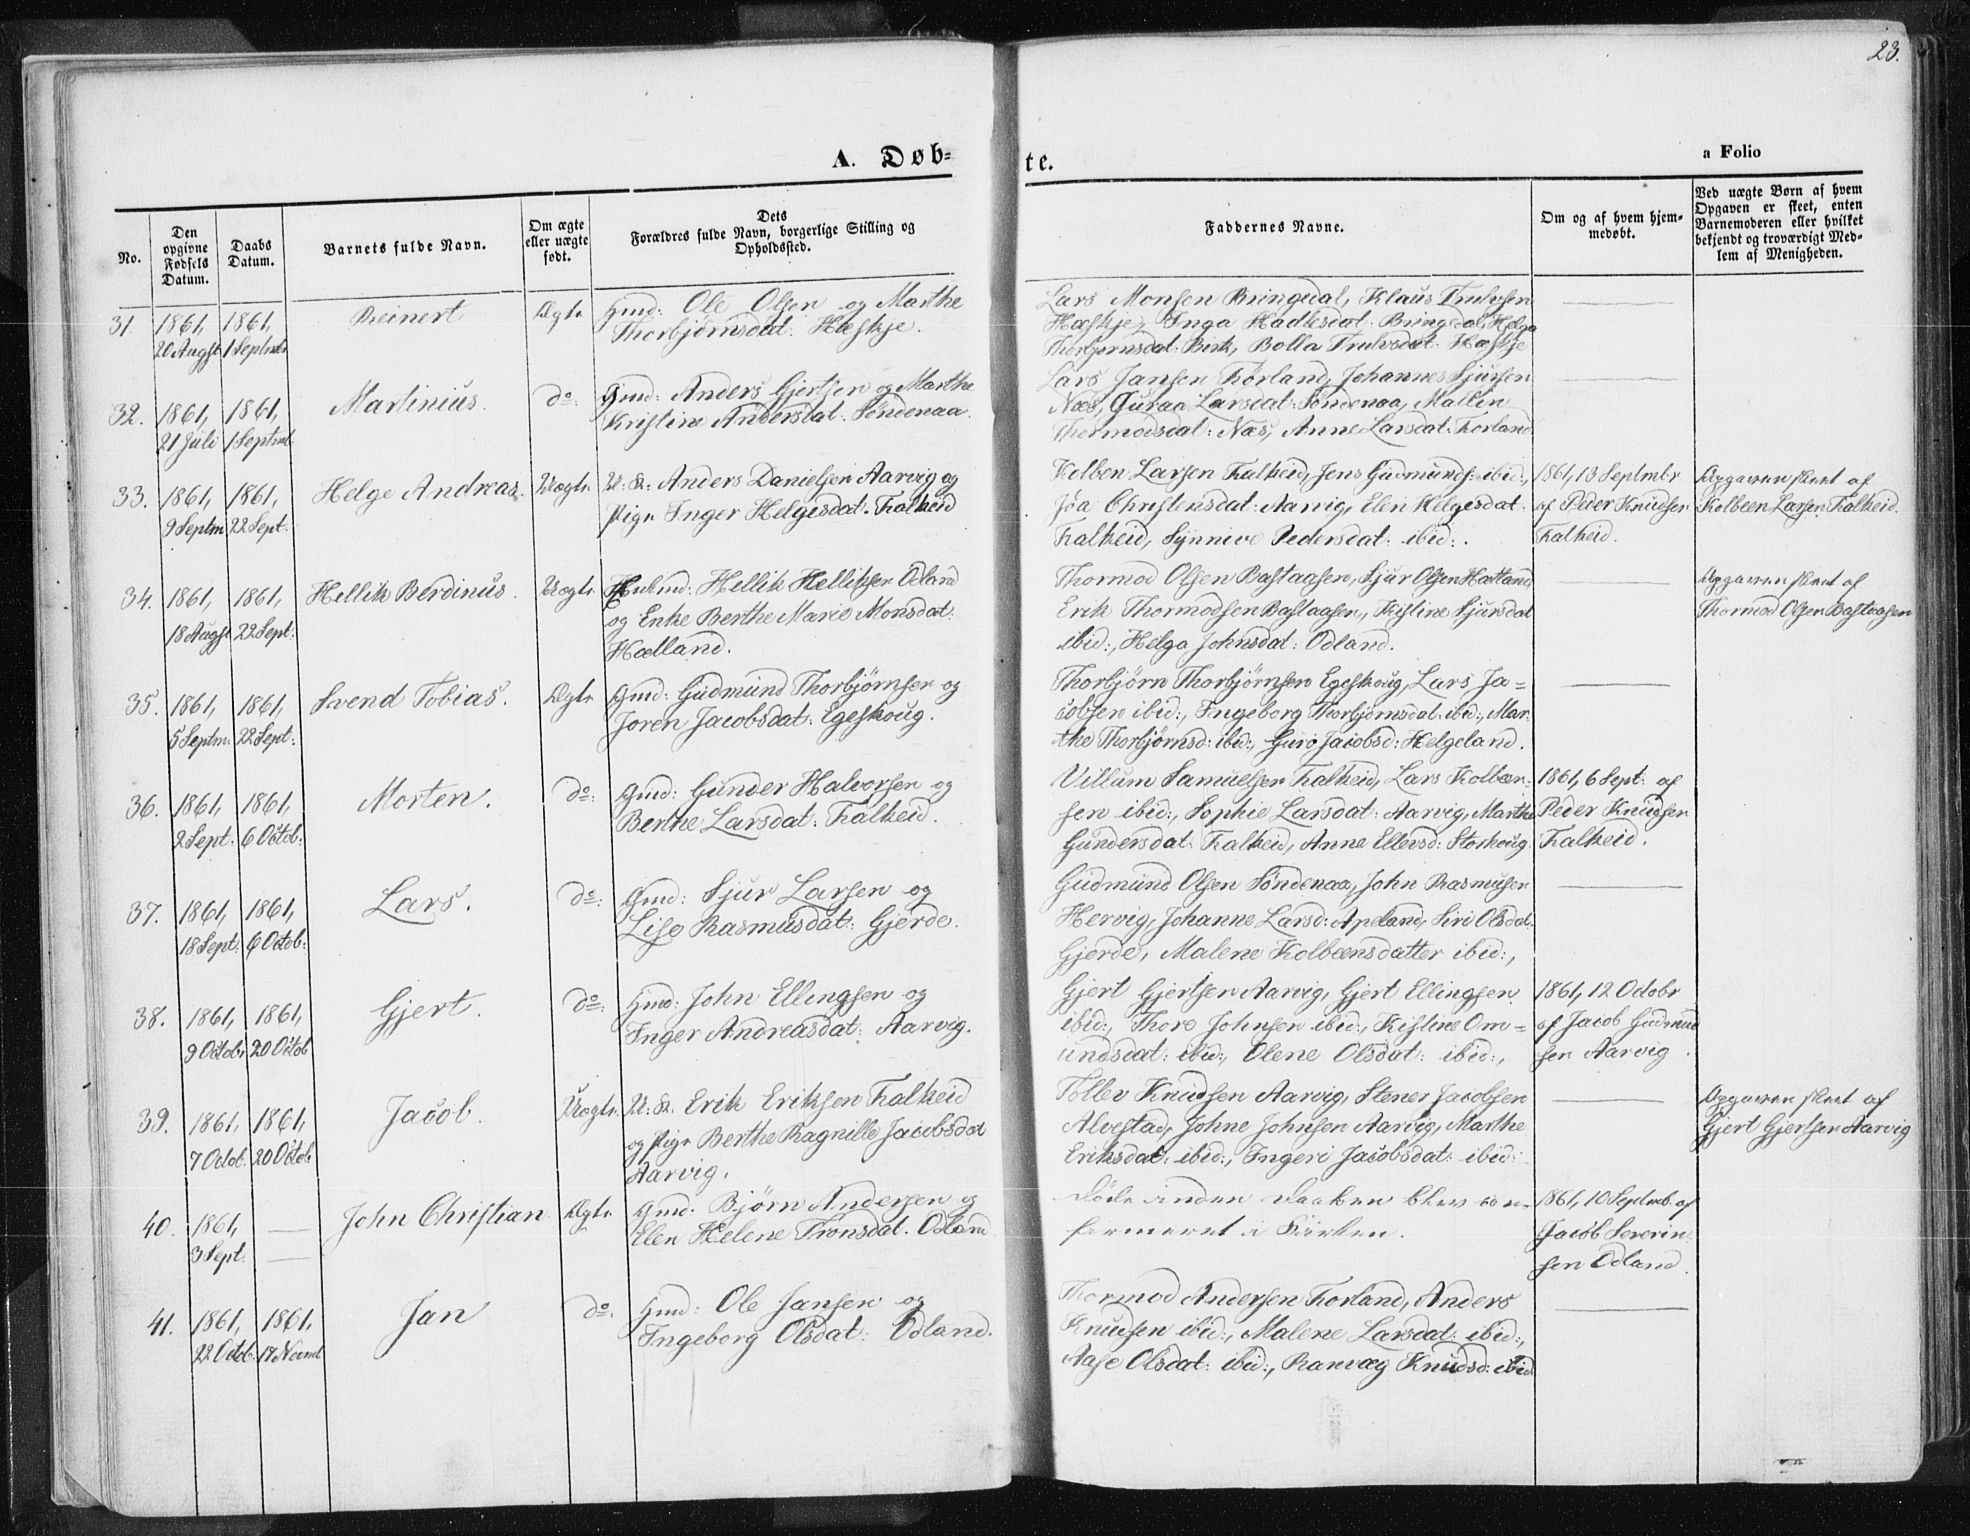 23.
A. Døb-
te.
a Folio
No.
Den opgivne Fødsels Datum.
Daabs Datum.
Barnets fulde Navn.
Om ægte eller uægte født.
Dets Forældres fulde Navn, borgerlige Stilling og Opholdssted.
Faddernes Navne.
Om og af hvem hjem-
medøbt.
Ved uægte Børn af hvem
Opgaven er skeet, enten
Barnemoderen eller hvilket
bekjendt og troværdigt Med-
lem af Menigheden.
31. 1861, 1861, Reinert Ægte Gmd: Ole Olsen og Marthe
20 Augst 1 Septmbr Thorbjørnsdat: Hæskje.
Lars Monsen Bringedal, Klaus Trulsen
Hæskje, Inga Hadlesdat: Bringedal, Helga
Thorbjørnsdat: Birk, Bolla Trulsdat: Hæskje
32. 1861, 1861, Martinius. do: Gmd: Anders Gjertsen og Marthe
21 Juli 1 Septmb. Kristine Andersdat: Søndenaa.
Lars Jansen Førland, Johannes Sjursen
Næs, Guraa Larsdat: Søndenaa, Mallin
Thormodsdat: Næs, Anne Larsdat: Førland
33. 1861, 1861, Helge Andreas. Uægte U: K: Anders Danielsen Aarvig og
9 Septm 22 Sept. Pige Inger Helgesdat: Falkeid
Kolben Larsen Falkeid, Jens Gudmunds: ibid:, 1861, 13 Septmbr Opgaven skeet af
Jøa Christensdat: Aarvig, Elen Helgesdat: af Peder Knudsen Kolbeen Larsen Falkeid.
Falkeid, Synnive Pedersdat: ibid:. Falkeid.
34. 1861, 1861, Hellik Berdinus. Uægte Hellik Helliksen Odland
18 Augst 22 Sept: og Enke Berthe Marie Monsdat:
Hælland.
Thormod Olsen Bastaasen, Sjur Olsen Hætland Opgaven skeet af
Erik Thormodsen Bastaasen, Kistine Sjursdat Thormod Olsen Bastaasen
ibid:, Helga Johnsdat: Odland.
35. 1861, 1861, Svend Tobias. Ægte Gmd: Gudmund Thorbjørnsen og
5 Septm: 22 Sept: Joren Jacobsdat: Egeskoug.
Thorbjörn Thorbjörnsen Egeskoug, Lars Ja=
cobsen ibid:, Ingeborg Thorbjörnsdat: ibid:, Mar-
the Thorbjörnsd: ibid:, Guro Jacobsd: Helgeland.
36. 1861, 1861, Morten. do: Gmd: Gunder Halvorsen og
2 Sept: 6 Octob: Berthe Larsdat: Falkeid.
Villum Samuelsen Falkeid, Lars Kolbeen- 1861, 6 Sept: af
sen ibid:, Sophie Larsdat: Aarvig, Marthe Peder Knudsen
Gundersdat: Falkeid, Anne Ellevsd: Storkoug. Falkeid.
37. 1861, 1861, Lars. do: Gmd: Sjur Larsen og
18 Sept: 6 Octob: Lise Rasmusdat: Gjerde.
Gudmund Olsen Søndenaa, John Rasmusen
Hervig, Johanne Larsd: Apeland, Siri Olsdat:
Gjerde, Malene Kolbeensdatter ibid:,
38. 1861, 1861, Gjert. do: Gmd: John Ellingsen og
9 Octobr 20 Octob Inger Andreasdat: Aarvig.
Gjert Gjertsen Aarvig, Gjert Ellingsen 1861, 12 Octobr
ibid:, Thore Johnsen ibid:, Kistine Om= af Jacob Gudmund
undsdat: ibid:, Olene Olsdat: ibid:, sen Aarvig.
39. 1861, 1861, Jacob. Uægte. U: K. Erik Eriksen Falkeid
7 Octob. 20 Octob og Pige Berthe Ragnille Jacobsdat
Aarvig.
Tollev Knudsen Aarvig, Stener Jacobsen Opgaven skeet af
Alvestad, Johne Johnsen Aarvig, Marthe Gjert Gjertsen Aarvig
Eriksdat: ibid:, Ingeri Jacobsdat: ibid:
40. 1861, John Christian Ægte Gmd. Bjørn Andersen og
3 Sept. Elen Helene Tronsdat. Odland
Døde inden Daaben blev con- 1861, 10 Septmb. af
farmeret i Kirken. Jacob Severin
sen Odland.
41. 1861, 1861, Jan do. Gmd: Ole Jansen og
22 Octob. 17 Novmb Ingeborg Olsdat: Odland.
Thormod Andersen Førland, Anders
Knudsen ibid:, Malene Larsdat: ibid:,
Aase Olsdat: ibid:, Ranvæg Knudsd: ibid